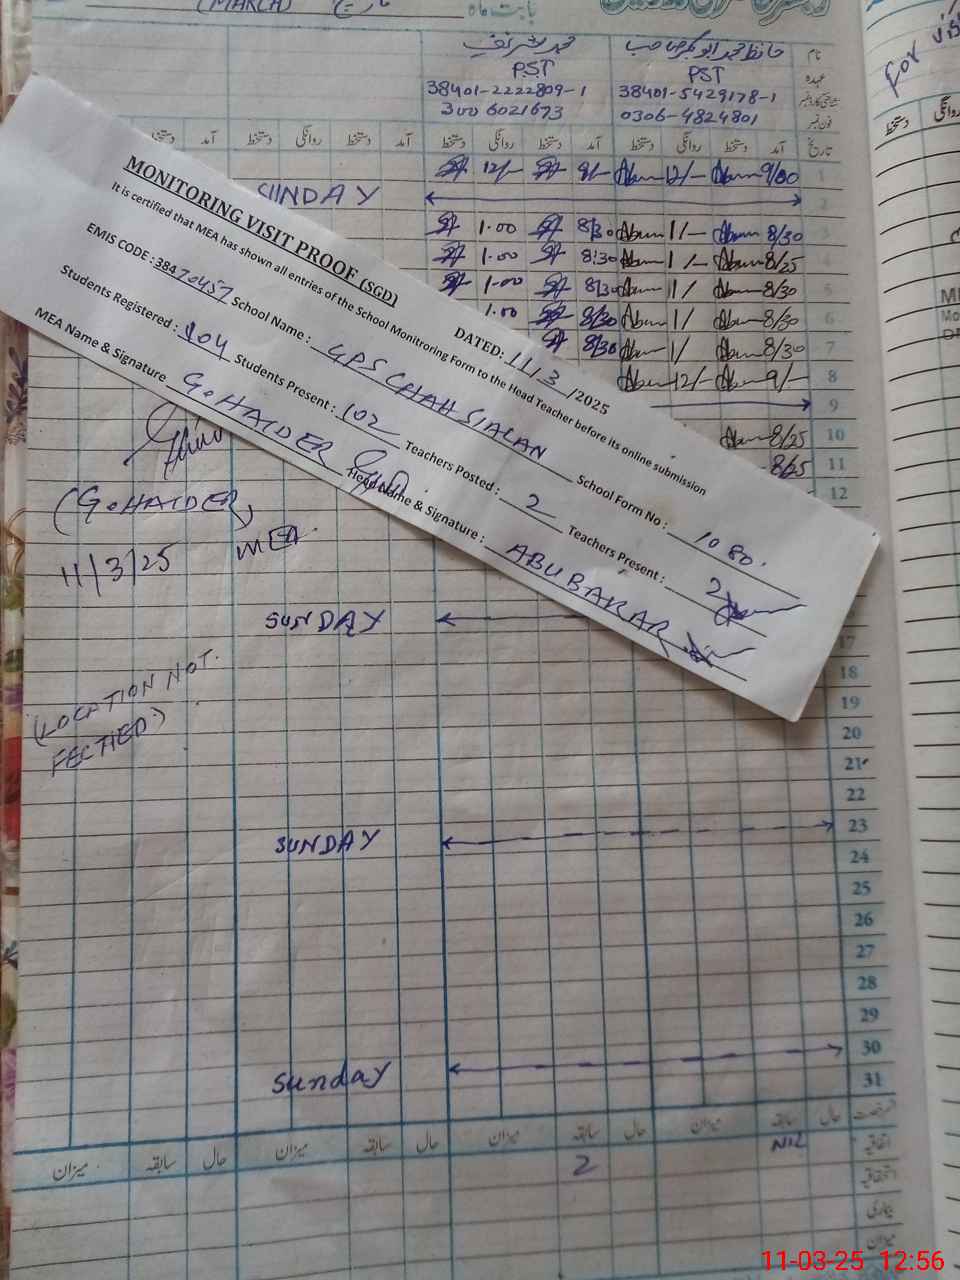 (MARCH)
بابت ماہ
For
نام
محمد شریف
حافظ محمد ابوبکر صاحب
عہدہ
PST
PST
38401-2222809-1
38401-5429178-1
300 6021673
0306-4824801
فون نمبر
تاریخ آمد دستخط روانگی دستخط آمد دستخط روانگی دستخط آمد دستخط روانگی دستخط آمد دستخط
روانگی
دستخط
12/- 8/- 12/- 9/00 1
SUNDAY 2
1.00 8/30 1/- 8/30 3
1.00 8:30 1/- 8/25 4
1.00 8/30 1/ 8/30 5
1.00 8/30 1/ 8/30 6
8/30 1/ 8/30 7
12/- 9/- 8
9
8/25 10
8/25 11
12
MONITORING VISIT PROOF (SGD)
DATED: 11/3/2025
It is certified that MEA has shown all entries of the School Monitroring Form to the Head Teacher before its online submission
EMIS CODE : 38470457 School Name : GPS CHAH SIALAN School Form No : 1080.
Students Registered : 104 Students Present : 102 Teachers Posted : 2 Teachers Present : 2
MEA Name & Signature G. HAIDER Head Name & Signature : ABUBAKAR
(G. HAIDER)
MEA
11/3/25
SUNDAY
17
18
(LOCATION NOT
FECTIED)
19
20
21
22
SUNDAY 23
24
25
26
27
28
29
30
Sunday
31
حال سابقہ میزان حال سابقہ میزان حال سابقہ میزان حال سابقہ میزان
اتفاقیہ
NIL
2
استحقاقیہ
بیماری
میزان
11-03-25 12:56